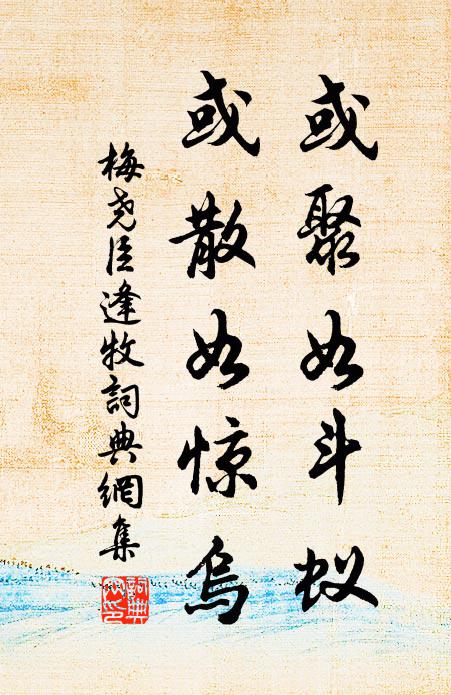 或聚如斗蚁
或散如惊乌
梅尧臣逢牧詞典網集